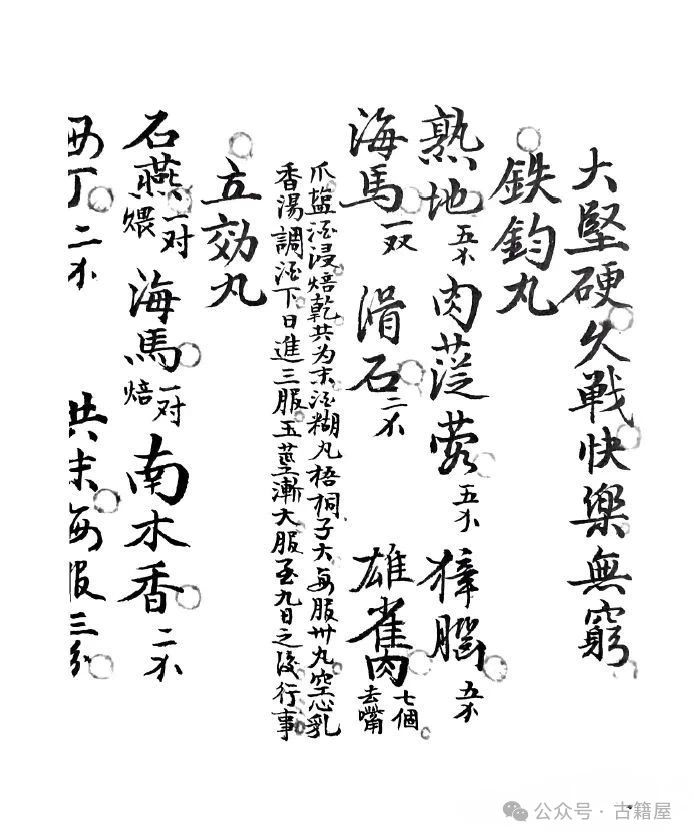 大堅硬久戰快樂無窮
鉄鈞丸
熟地五 肉蓯蓉五 獐腦五
海馬一双 滑石二 雄雀肉七個去嘴
爪塩酒浸焙乾共为末酒糊丸梧桐子大每服卅丸空心乳
香湯調酒下日進三服玉莖漸大服至九日之後行事
立効丸
石燕一对煨 海馬一对焙 南木香二
丁二 共末每服三分
公众号·古籍屋